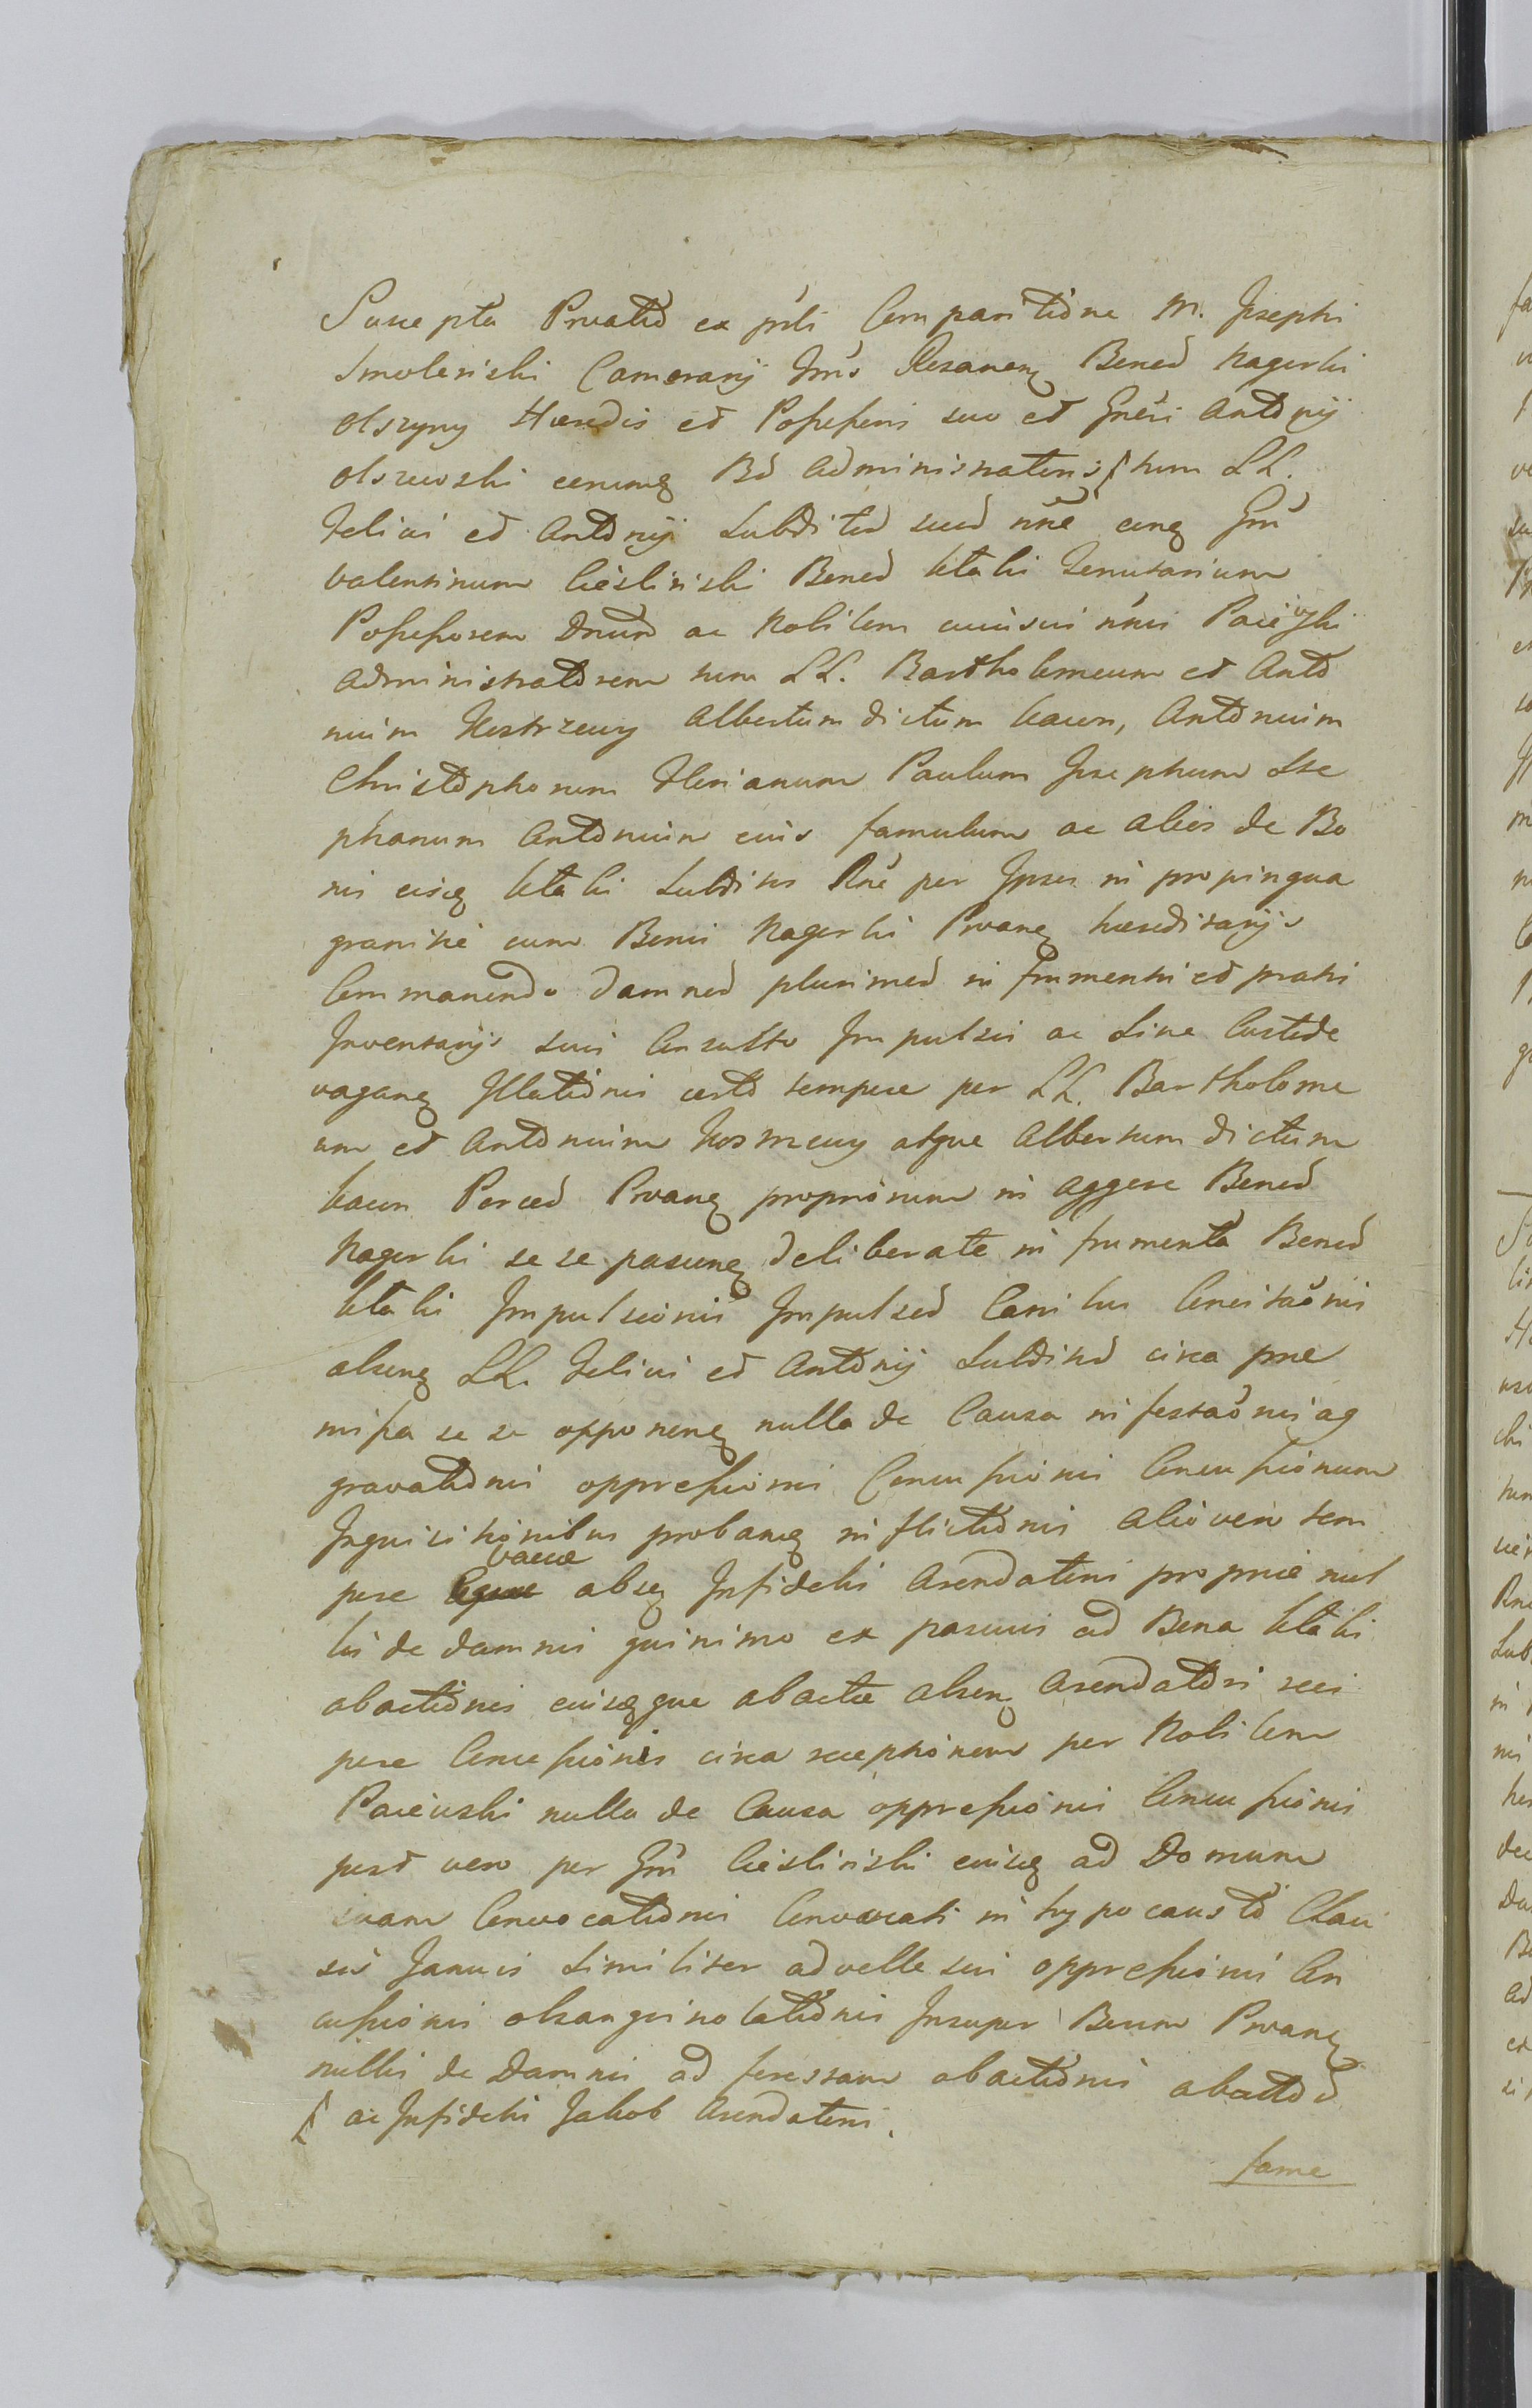 Suscepta Prvatio ex prti Comparitione M. Josephi
Smolenski Camerarij Tris Rosanen Bonor Nagorki
Olszyny Hæredis et Possessoris suo et Gnēsi Antonij
Olszewski eorumq Br Administratoris tum LL.
Felicis et Antonij Subditor suor nne conq Gnr
Valentinum Cieslinski Bonor Utaki Tenutarium
Possessorem Dnum ac Nobilem cuiusvis nnis Paiewski
Administratorem tum LL. Bartholomeum et Anto
nium Kostrzewy Albertum dictum Kacon, Antonium
Christophorum Florianum Paulum Josephum Ste
phanum Antonium eius famulum ac alios de Bo
nis eisq Utaki Subditos Rne per Ipsos in propinqua
granitie cum Bonis Nagorki Prvanq hæreditarijs
Commanendo damnor plurimor in frumentis et pratis
Inventarijs suis Consulto Impulsis ac Sine Custode
vaganq Illationis certo tempore per LL. Bartholome
um et Antonium Kostrzewy atque Albertum dictum
Kacon Porcor Prvanq propriorum in aggere Bonor
Nagorki se se pascenq deliberate in frumenta Bonor
Utaki Impulsionis Impulsor Canibus Concitaōnis
absenq LL. Felicis et Antonij Subditor circa præ
missa se se opponenq nulla de Causa infestaōnis ag
gravationis oppressionis Concussionis Concussionum
Inquisitionibus probanq inflictionis alio vero tem
pore vaccæ absq Infidelis Arendatoris propriæ nul
lis de damnis quinimo ex pascuis ad Bona Utaki
abactionis eiusqque abactæ absenq Arendatori reci
pere Concussionis circa receptionem per Nobilem
Paiewski nulla de Causa oppressionis Concussionis
post vero per Gnr Cieslinski eiusq ad Domum
suam Convocationis Convocati in hypocausto Clau
sis Januis Similiter ad velle sui oppressionis Con
cussionis obsanguinolationis Insuper Boum Prvanq
nullis de Damnis ad forestam abactionis abactor
ac Infidelis Jakob Arendatoris.
fame